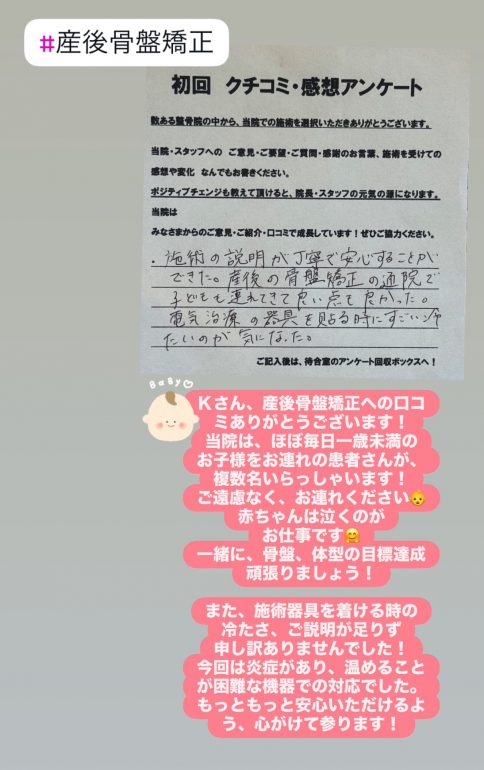 #産後骨盤矯正
初回 クチコミ・感想アンケート
数ある整骨院の中から、当院での施術を選択いただきありがとうございます。
当院・スタッフへの ご意見・ご要望・ご質問・感謝のお言葉、施術を受けての
感想や変化 なんでもお書きください。
ポジティブチェンジも教えて頂けると、院長・スタッフの元気の源になります。
当院は
みなさまからのご意見・ご紹介・口コミで成長しています！ぜひご協力ください。
・施術の説明が丁寧で安心することが
できた。産後の骨盤矯正の通院で
子どもも連れてきて良い点も良かった。
電気治療の器具を貼る時にすごい冷
たいのが気になった。
ご記入後は、待合室のアンケート回収ボックスへ！
BaBy♡
Kさん、産後骨盤矯正への口コ
ミありがとうございます！
当院は、ほぼ毎日一歳未満の
お子様をお連れの患者さんが、
複数名いらっしゃいます！
ご遠慮なく、お連れください👶
赤ちゃんは泣くのが
お仕事です🤗
一緒に、骨盤、体型の目標達成
頑張りましょう！
また、施術器具を着ける時の
冷たさ、ご説明が足りず
申し訳ありませんでした！
今回は炎症があり、温めること
が困難な機器での対応でした。
もっともっと安心いただけるよ
う、心がけて参ります！